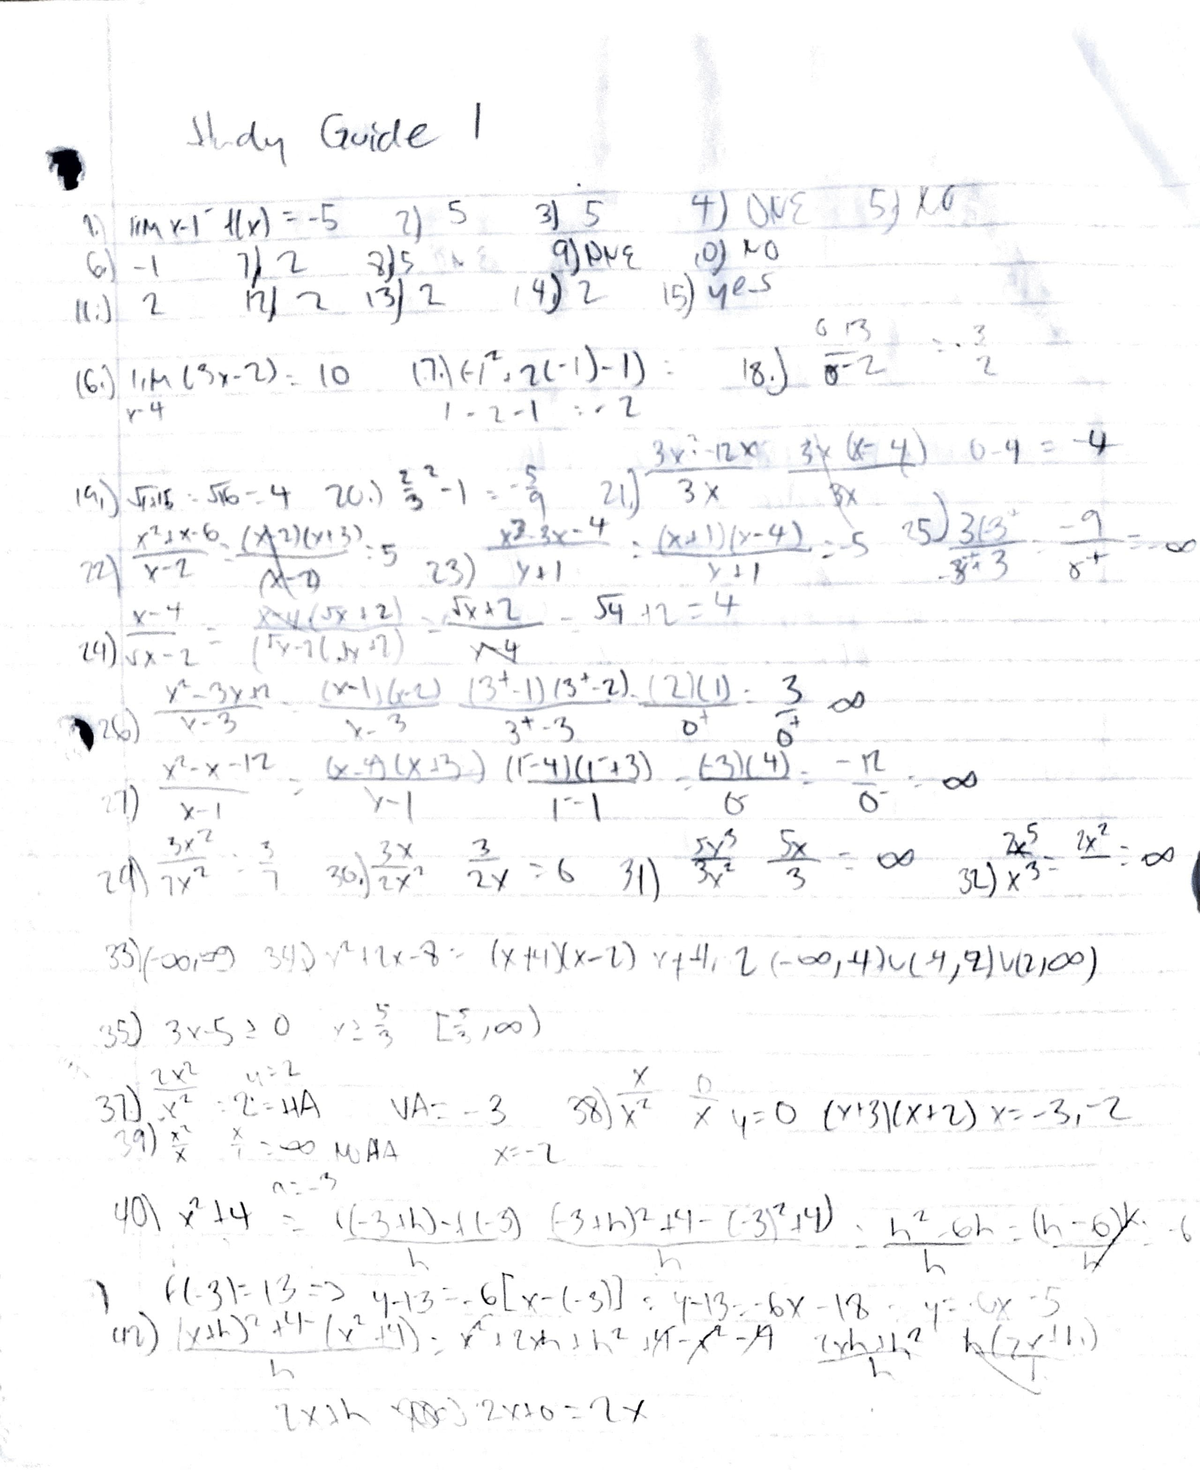 Study Guide 1
1.) lim x-1⁻ f(x) = -5 2) 5 3) 5 4) DNE 5) NO
6.) -1 7) 2 8) 5 9) DNE 10) NO
11.) 2 12) 2 13) 2 14) 2 15) yes
16.) lim (3x-2) = 10 17.) (-1², 2(-1)-1) = 18.) 0-2 = -3/2
x-4 1-2-1 = -2
19.) √16 = 4 20.) 2/3² -1 = -5/9 21.) 3x²-12x / 3x 3x(x-4) / 3x 0-4 = -4
22) x²+x-6 / x-2 = (x-2)(x+3) / (x-2) = 5 23) x²-3x-4 / x+1 = (x+1)(x-4) / x+1 = -5 25) -9 / 0⁺ = -∞
24) x-4 / √x-2 = x-4(√x+2) / (√x-2(√x+2) = √x+2 / x-4 = √4+2 = 4
26) x²-3x+2 / x-3 = (x-1)(x-2) / x-3 (3⁺-1)(3⁺-2) / 3⁺-3 = (2)(1) / 0⁺ = 3 / 0⁺ ∞
27) x²-x-12 / x-1 = (x-4)(x+3) / x-1 (1⁻-4)(1⁻+3) / 1⁻-1 = (-3)(4) / 0⁻ = -12 / 0⁻ = ∞
29) 3x² / 7x² = 3/7 30.) 3x / 2x² 3 / 2x = 6 31) 5x³ / 3x² 5x / 3 = ∞ 32) 2x⁵ / x³ = 2x² = ∞
33) (-∞,∞) 34.) x²+2x-8 = (x+4)(x-2) x≠4, 2 (-∞,-4)∪(-4,2)∪(2,∞)
35) 3x-5 ≥ 0 x ≥ 5/3 [5/3,∞)
37.) 2x² / x² = 2 = HA y=2 VA = -3 38) x / x² 0 / x y=0 (x+3)(x+2) x = -3, -2
39) x² / x x / 1 = ∞ NO HA x=-2
40) x²+4 a=-3 = f(-3+h)-f(-3) / h (-3+h)²+4-(-3)²+4) / h = h²-6h / h = (h-6)h / h = -6
f(-3) = 13 => y-13 = -6[x-(-3)] = y-13 = -6x-18 = y = -6x-5
42) (x+h)²+4-(x²+4) / h = x²+2xh+h²+4-x²-4 2xh+h² / h h(2x+h)
2x+h 2x+0 = 2x